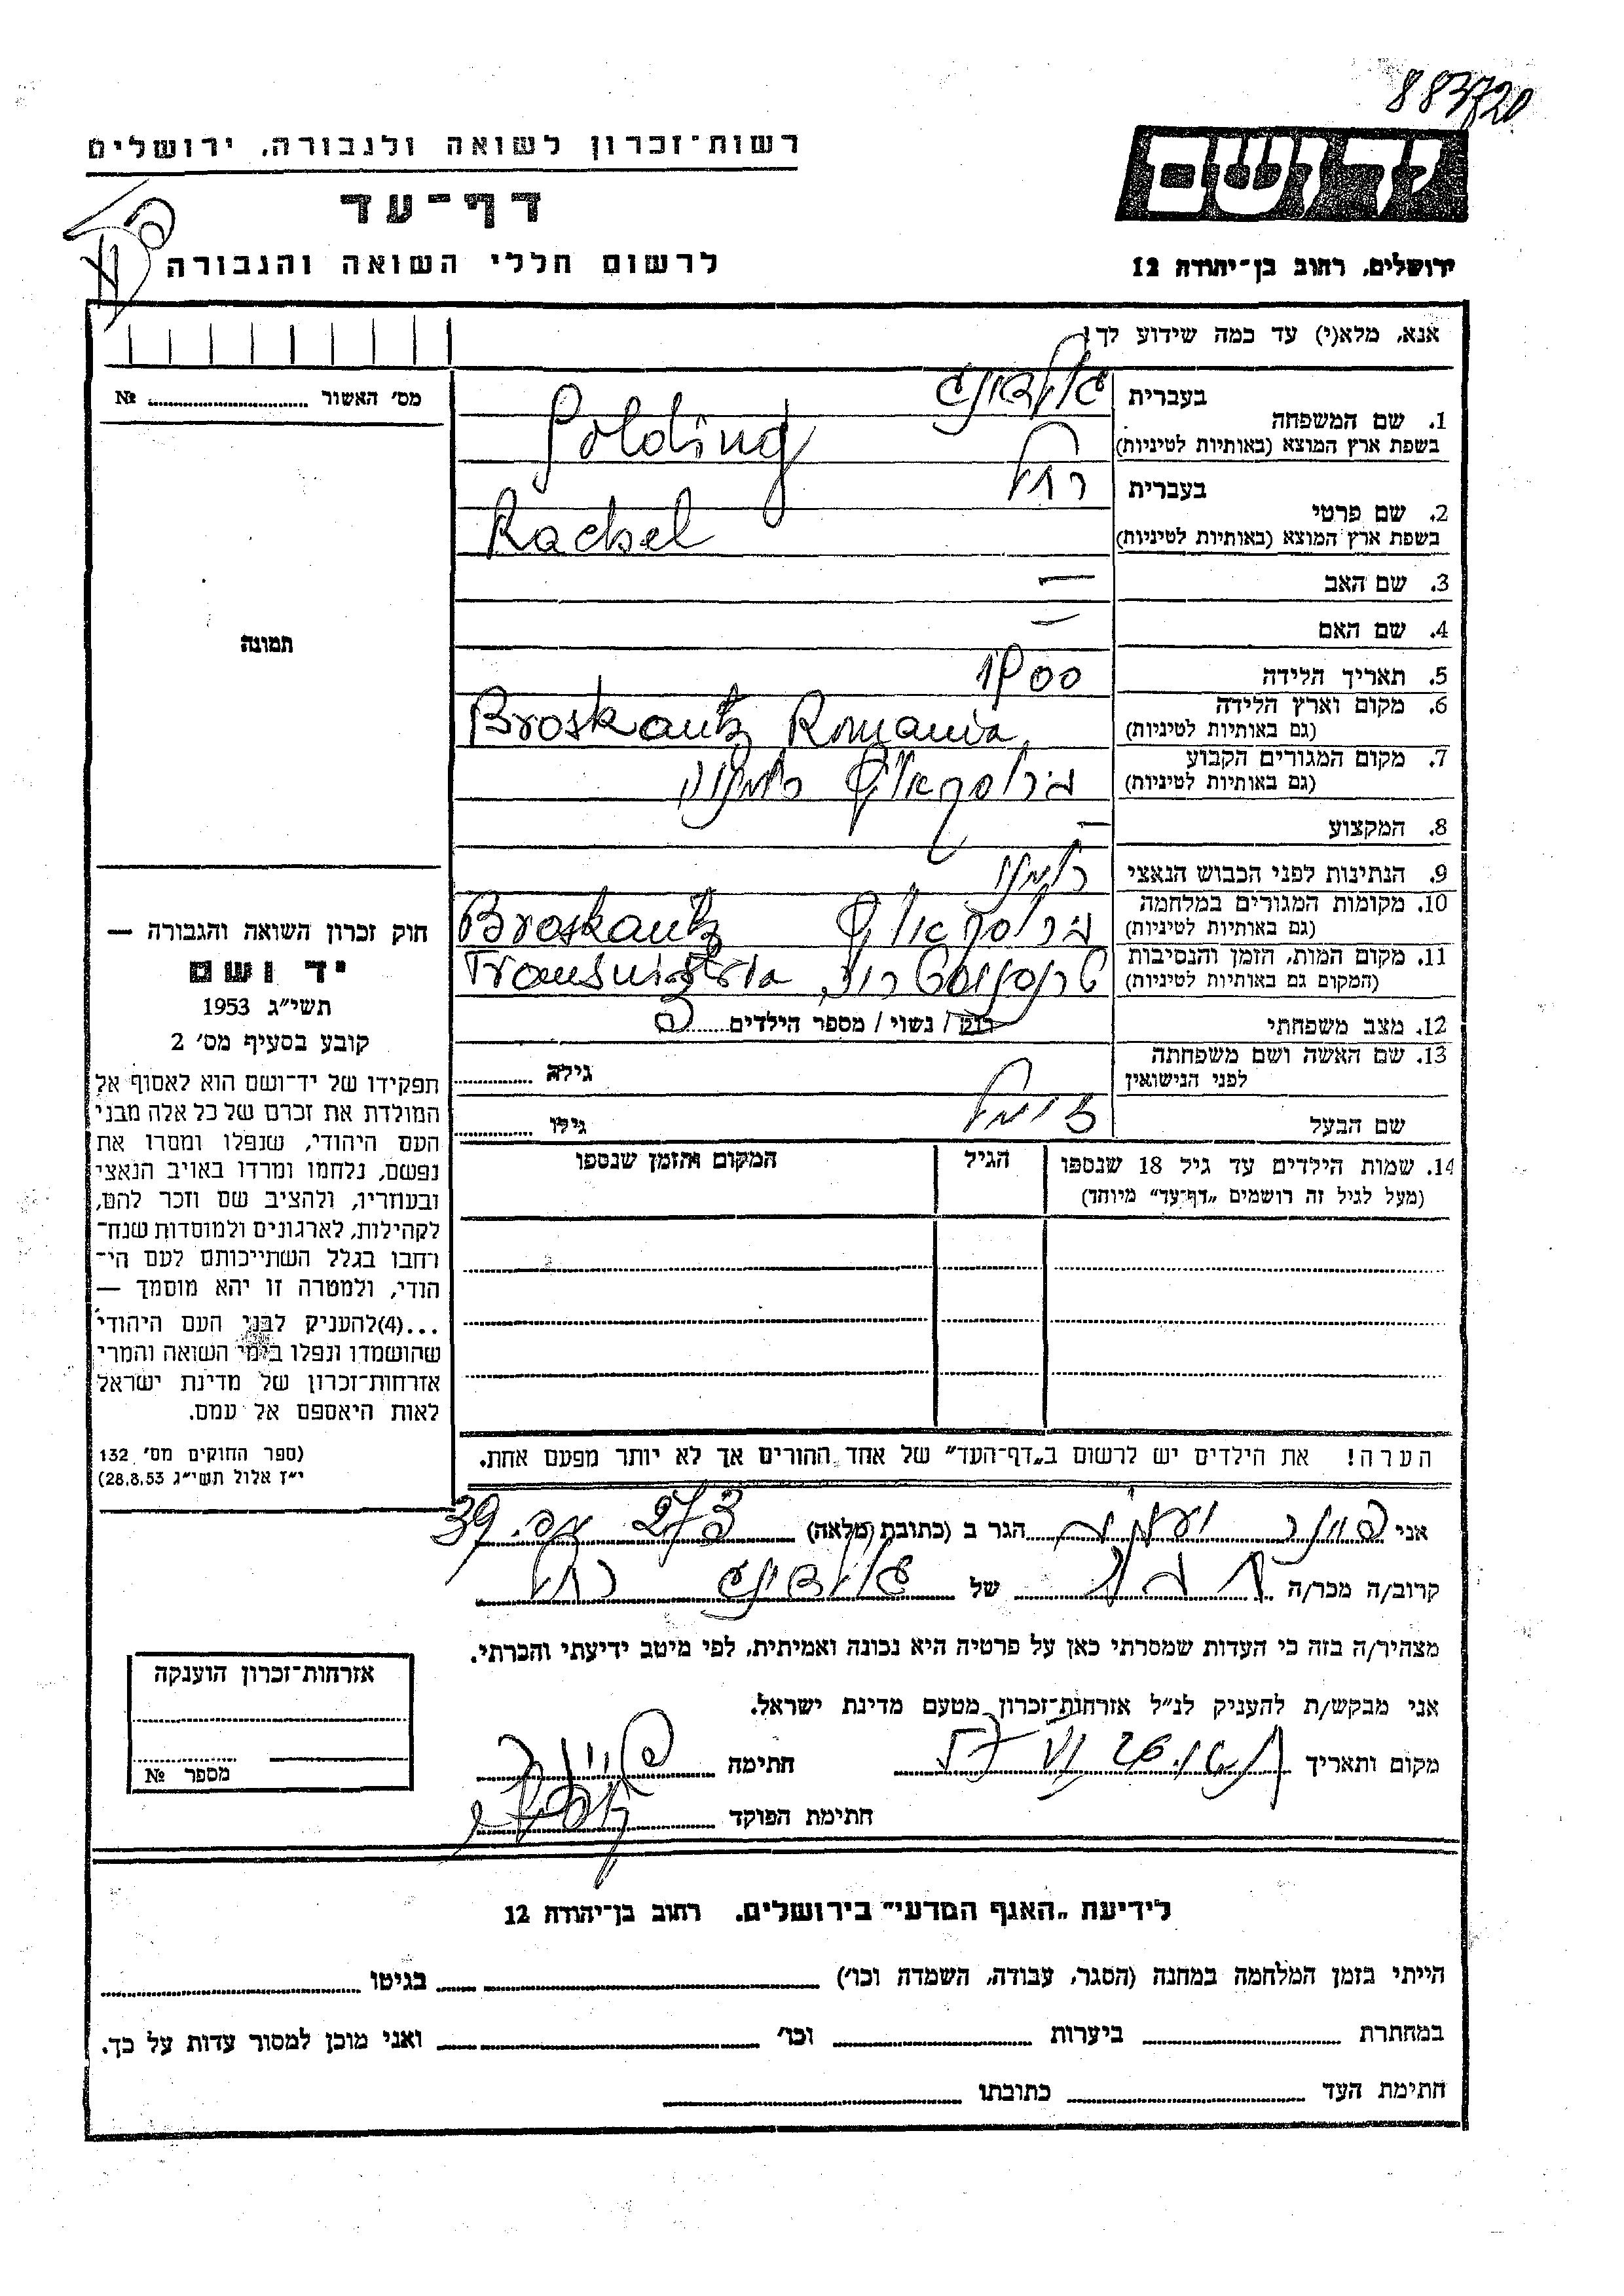 883720
יד ושם
רשות־זכרון לשואה ולגבורה, ירושלים
דף־עד
לרשום חללי השואה והגבורה
ירושלים, רחוב בן־יהודה 12
אנא, מלא(י) עד כמה שידוע לך!
מס׳ האשור № 
תמונה
1. שם המשפחה
בעברית
בשפת ארץ המוצא (באותיות לטיניות) Polding
2. שם פרטי
בעברית רחל
בשפת ארץ המוצא (באותיות לטיניות) Rachel
3. שם האב —
4. שם האם —
5. תאריך הלידה 1900
6. מקום וארץ הלידה
(גם באותיות לטיניות) Broskautz Romania
7. מקום המגורים הקבוע
(גם באותיות לטיניות) ברוסקאוץ רומניה
8. המקצוע —
9. הנתינות לפני הכבוש הנאצי רומני
10. מקומות המגורים במלחמה
(גם באותיות לטיניות) ברוסקאוץ Broskautz
11. מקום המות, הזמן והנסיבות
(המקום גם באותיות לטיניות) Transnistria
12. מצב משפחתי רווק / נשוי / מספר הילדים
13. שם האשה ושם משפחתה
לפני הנישואין גילה
שם הבעל גילו
14. שמות הילדים עד גיל 18 שנספו
(מעל לגיל זה רושמים „דף־עד״ מיוחד)
הגיל
המקום והזמן שנספו
הערה! את הילדים יש לרשום ב„דף־העד״ של אחד ההורים אך לא יותר מפעם אחת.
חוק זכרון השואה והגבורה —
יד ושם
תשי״ג 1953
קובע בסעיף מס׳ 2
תפקידו של יד־ושם הוא לאסוף אל
המולדת את זכרם של כל אלה מבני
העם היהודי, שנפלו ומסרו את
נפשם, נלחמו ומרדו באויב הנאצי
ובעוזריו, ולהציב שם וזכר להם,
לקהילות, לארגונים ולמוסדות שנח־
רחבו בגלל השתייכותם לעם הי־
הודי, ולמטרה זו יהא מוסמך —
...(4)להעניק לבני העם היהודי
שהושמדו ונפלו בימי השואה והמרי
אזרחות־זכרון של מדינת ישראל
לאות היאספם אל עמם.
(ספר החוקים מס׳ 132
י״ז אלול תשי״ג 28.8.53)
אני הגר ב (כתובת מלאה) 39
קרוב/ה מכר/ה של רחל
מצהיר/ה בזה כי העדות שמסרתי כאן על פרטיה היא נכונה ואמיתית, לפי מיטב ידיעתי והכרתי.
אני מבקש/ת להעניק לנ״ל אזרחות־זכרון מטעם מדינת ישראל.
מקום ותאריך חתימה
חתימת הפוקד
אזרחות־זכרון הוענקה
מספר №
לידיעת „האגף המדעי״ בירושלים, רחוב בן־יהודה 12
הייתי בזמן המלחמה במחנה (הסגר, עבודה, השמדה וכו׳) בגיטו
במחתרת ביערות וכו׳ ואני מוכן למסור עדות על כך.
חתימת העד כתובתו